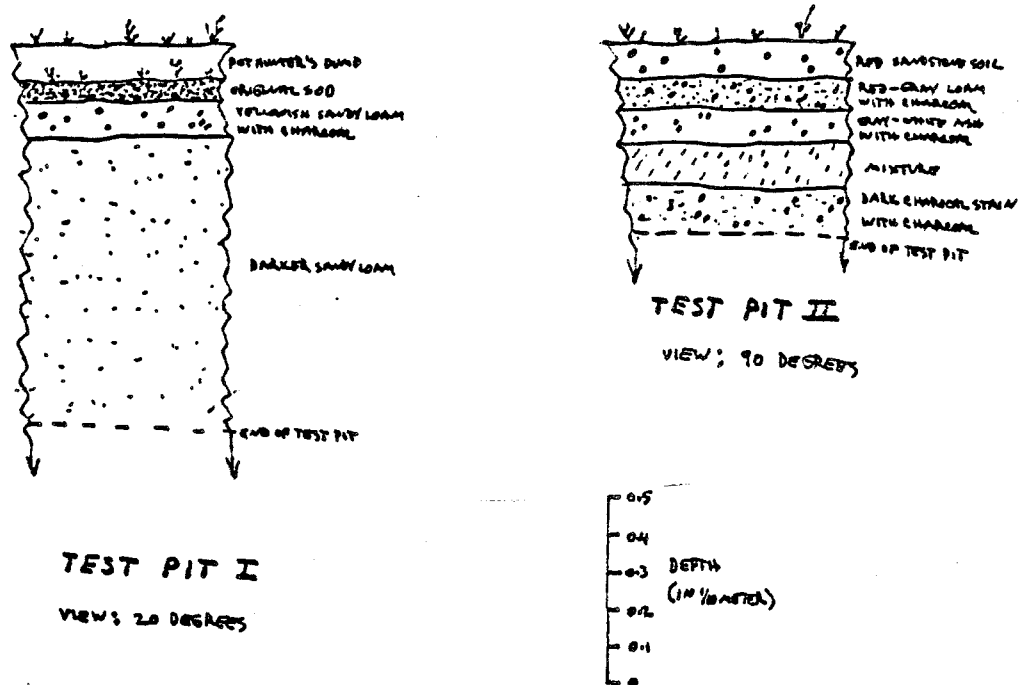 POTHUNTER'S DUMP
ORIGINAL SOD
YELLOWISH SANDY LOAM
WITH CHARCOAL
DARKER SANDY LOAM
END OF TEST PIT
TEST PIT I
VIEW: 20 DEGREES
RED SANDSTONE SOIL
RED-GRAY LOAM
WITH CHARCOAL
GRAY-WHITE ASH
WITH CHARCOAL
MIXTURE
DARK CHARCOAL STAIN
WITH CHARCOAL
END OF TEST PIT
TEST PIT II
VIEW: 90 DEGREES
0.5
0.4
0.3
0.2
0.1
0
DEPTH
(IN 1/10 METER)